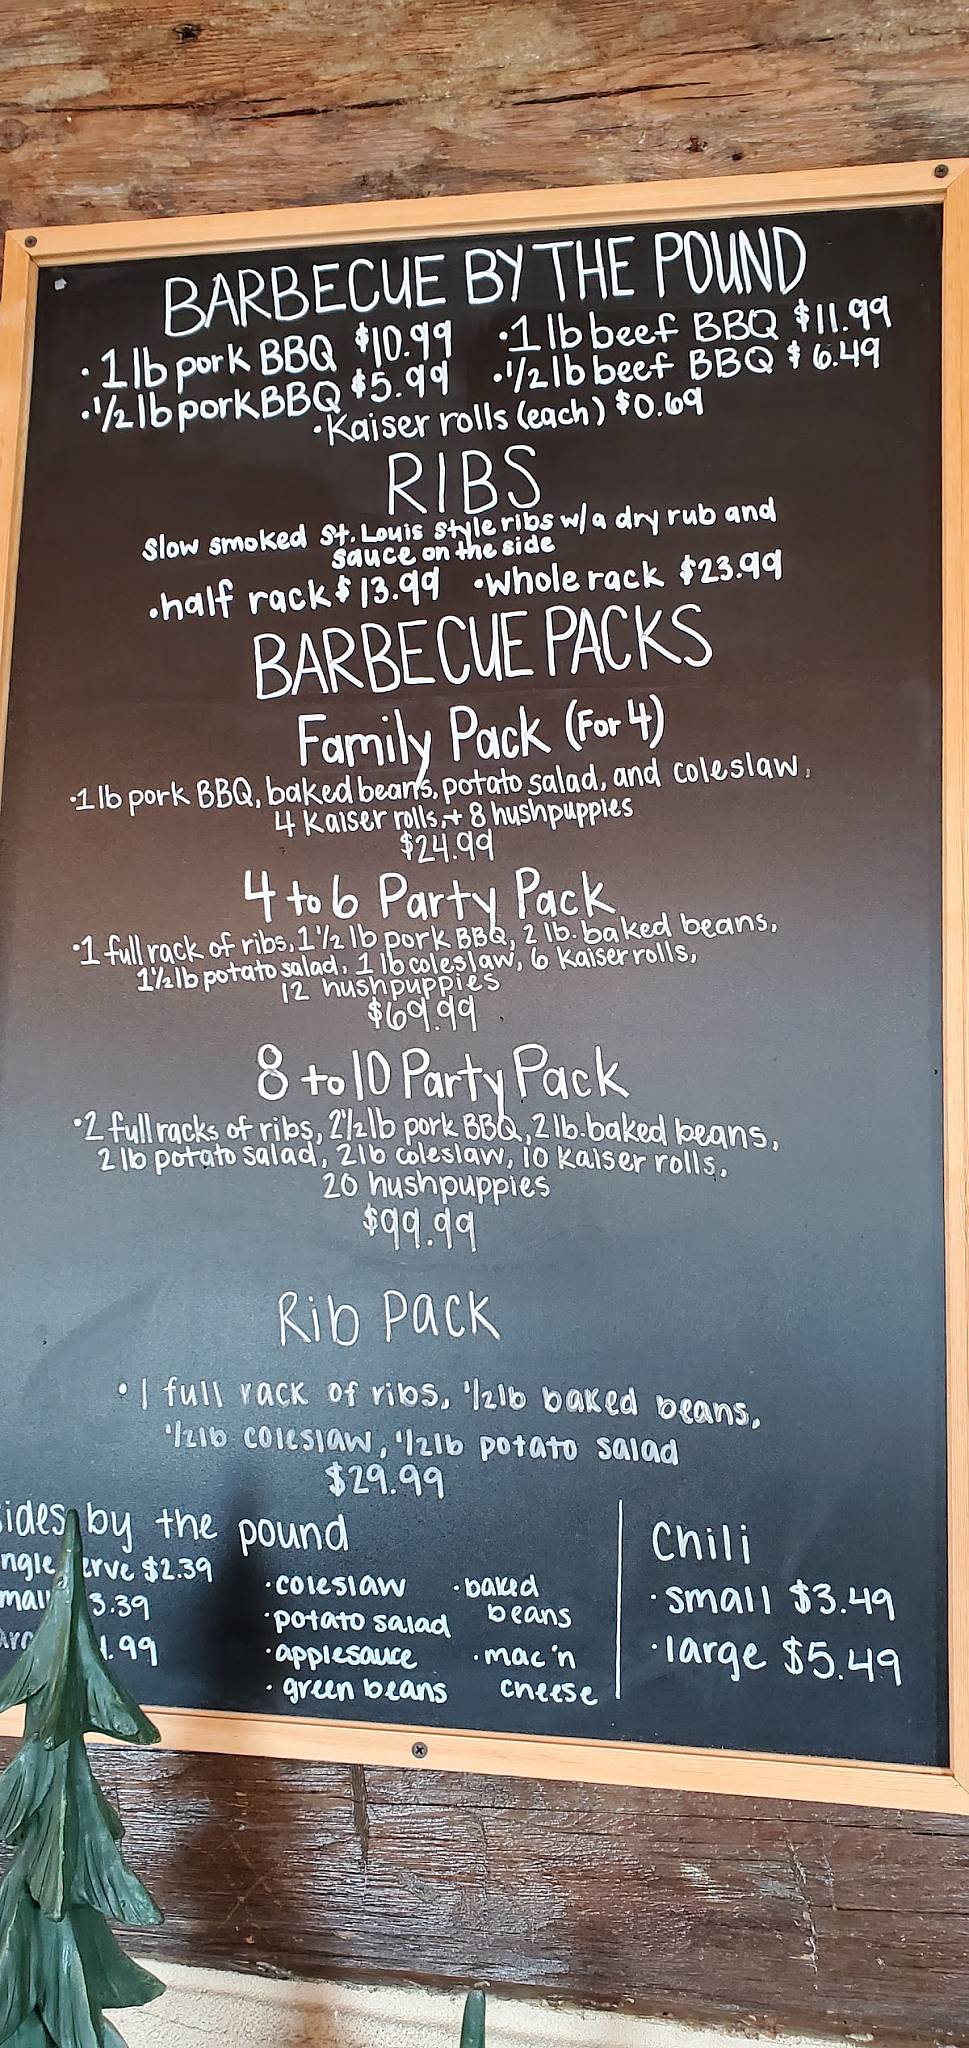 BARBECUE BY THE POUND
·1 lb pork BBQ $10.99 ·1 lb beef BBQ $11.99
·1/2 lb pork BBQ $5.99 ·1/2 lb beef BBQ $6.49
·Kaiser rolls (each) $0.69
RIBS
Slow smoked St. Louis Style ribs w/a dry rub and
sauce on the side
·half rack $13.99 ·whole rack $23.99
BARBECUE PACKS
Family Pack (For 4)
·1 lb pork BBQ, baked beans, potato salad, and coleslaw,
4 Kaiser rolls, + 8 hushpuppies
$24.99
4 to 6 Party Pack
·1 full rack of ribs, 1 1/2 lb pork BBQ, 2 lb. baked beans,
1 1/2 lb potato salad, 1 lb coleslaw, 6 Kaiser rolls,
12 hushpuppies
$69.99
8 to 10 Party Pack
·2 full racks of ribs, 2 1/2 lb pork BBQ, 2 lb. baked beans,
2 lb potato salad, 2 lb coleslaw, 10 Kaiser rolls,
20 hushpuppies
$99.99
Rib Pack
·1 full rack of ribs, 1/2 lb baked beans,
1/2 lb coleslaw, 1/2 lb potato salad
$29.99
ides by the pound
$2.39
3.39
.99
·coleslaw ·baked
·potato salad beans
·applesauce ·mac'n
·green beans cheese
Chili
·small $3.49
·large $5.49